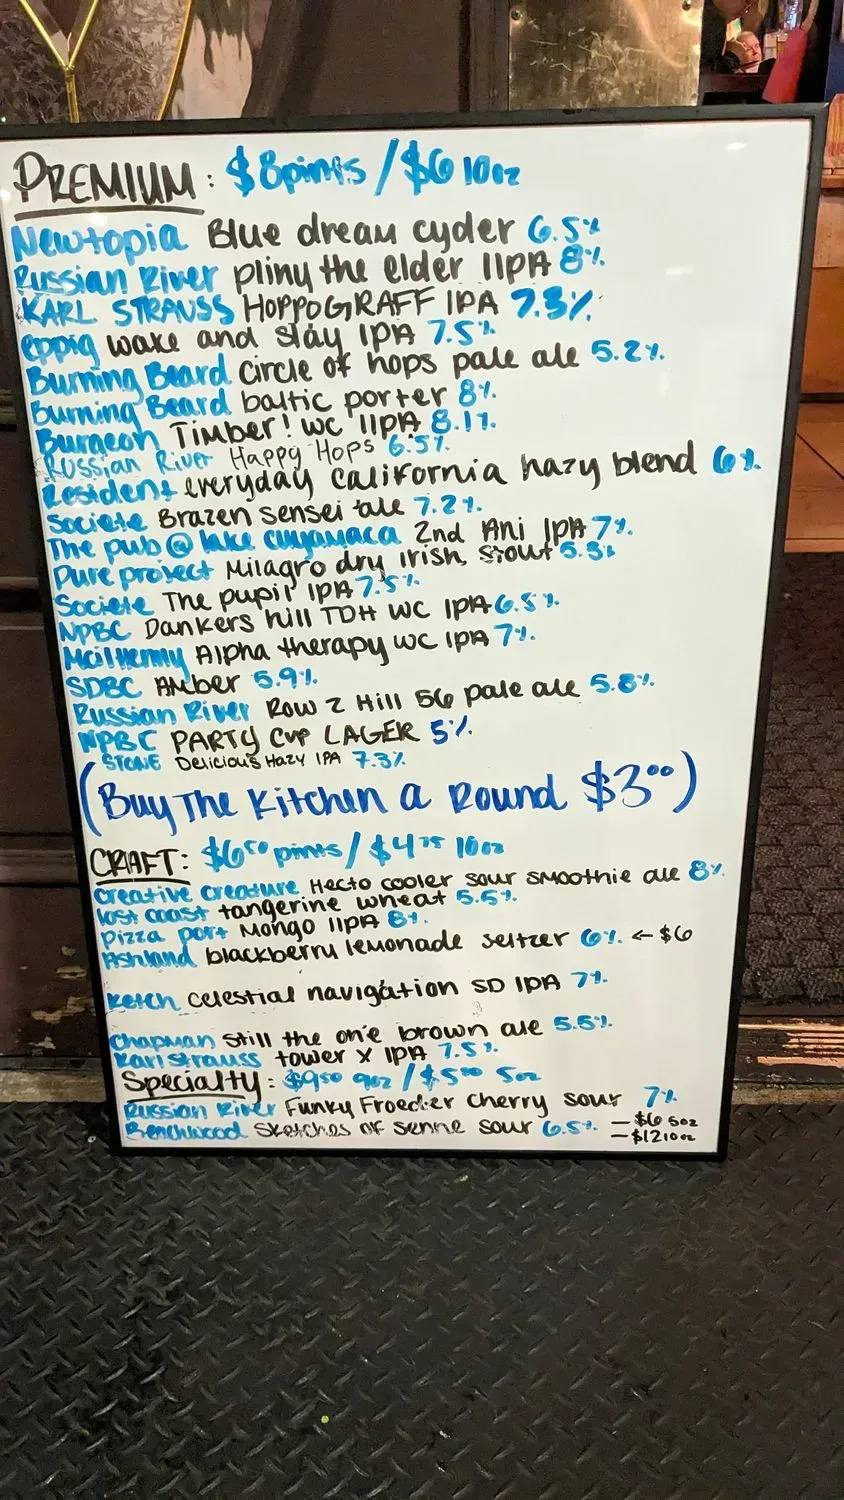 PREMIUM: $8pints / $6 10oz
Newtopia Blue dream cyder 6.5%
Russian River pliny the elder IIPA 8%
KARL STRAUSS HOPPOGRAFF IPA 7.3%
eppig wake and slay IPA 7.5%
Burning Beard Circle of hops pale ale 5.2%
Burning Beard baltic porter 8%
Burgeon Timber! WC IIPA 8.1%
Russian River Happy Hops 6.5%
Resident everyday California hazy blend 6%
Societe Brazen sensei ale 7.2%
The pub @ lake cuyamaca 2nd Ani IPA 7%
Pure project Milagro dry irish stout 5.3%
Societe The pupil IPA 7.5%
NPBC Dankers hill TDH WC IPA 6.5%
McIlhenny Alpha therapy WC IPA 7%
SDBC Amber 5.9%
Russian River Row 2 Hill 56 pale ale 5.8%
NPBC PARTY CUP LAGER 5%
STONE Delicious Hazy IPA 7.3%
(Buy The Kitchen a Round $3⁰⁰)
CRAFT: $6⁵⁰ pints / $4⁷⁵ 10oz
Creative Creature Hecto cooler sour smoothie ale 8%
lost coast tangerine wheat 5.5%
Pizza port Mongo IIPA 8%
Ashland blackberry lemonade seltzer 6% ← $6
Ketch Celestial navigation SD IPA 7%
Chapman Still the one brown ale 5.5%
Karl Strauss tower X IPA 7.5%
Specialty: $9⁵⁰ 9oz / $5⁰⁰ 5oz
Russian River Funky Froeder Cherry sour 7%
Benchwood Sketches of senne sour 6.5% – $6 5oz
– $12 10oz